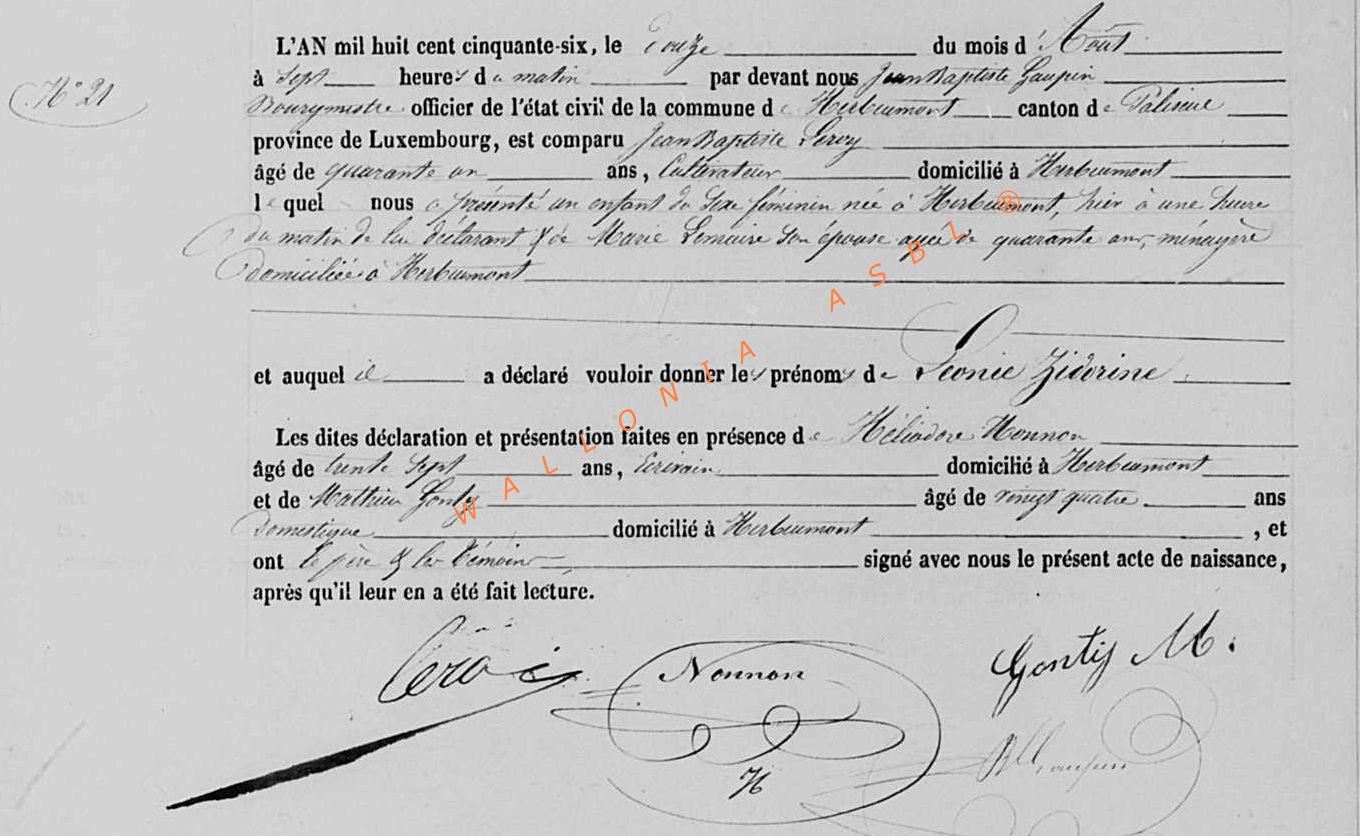 L'AN mil huit cent cinquante-six, le douze du mois d'Août
N° 21
à Sept heures du matin par devant nous Jean Baptiste Gaupin
Bourgmestre officier de l'état civil de la commune de Herbeumont canton de Paliseul
province de Luxembourg, est comparu Jean Baptiste Leroy
âgé de quarante un ans, Cultivateur domicilié à Herbeumont
lequel nous a présenté un enfant du sexe féminin née à Herbeumont, hier à une heure
du matin de lui déclarant & de Marie Lemaire son épouse agée de quarante ans, ménagère
domiciliée à Herbeumont
et auquel il a déclaré vouloir donner les prénoms de Léonie Zidorine
Les dites déclaration et présentation faites en présence de Héliodore Nonnon
âgé de trente Sept ans, Ecrivain domicilié à Herbeumont
et de Mathieu Gonty âgé de vingt quatre ans
Domestique domicilié à Herbeumont, et
ont le père & les témoins signé avec nous le présent acte de naissance,
après qu'il leur en a été fait lecture.
Nonnon
H
Gontij M.
WALLONIA ASBL ®